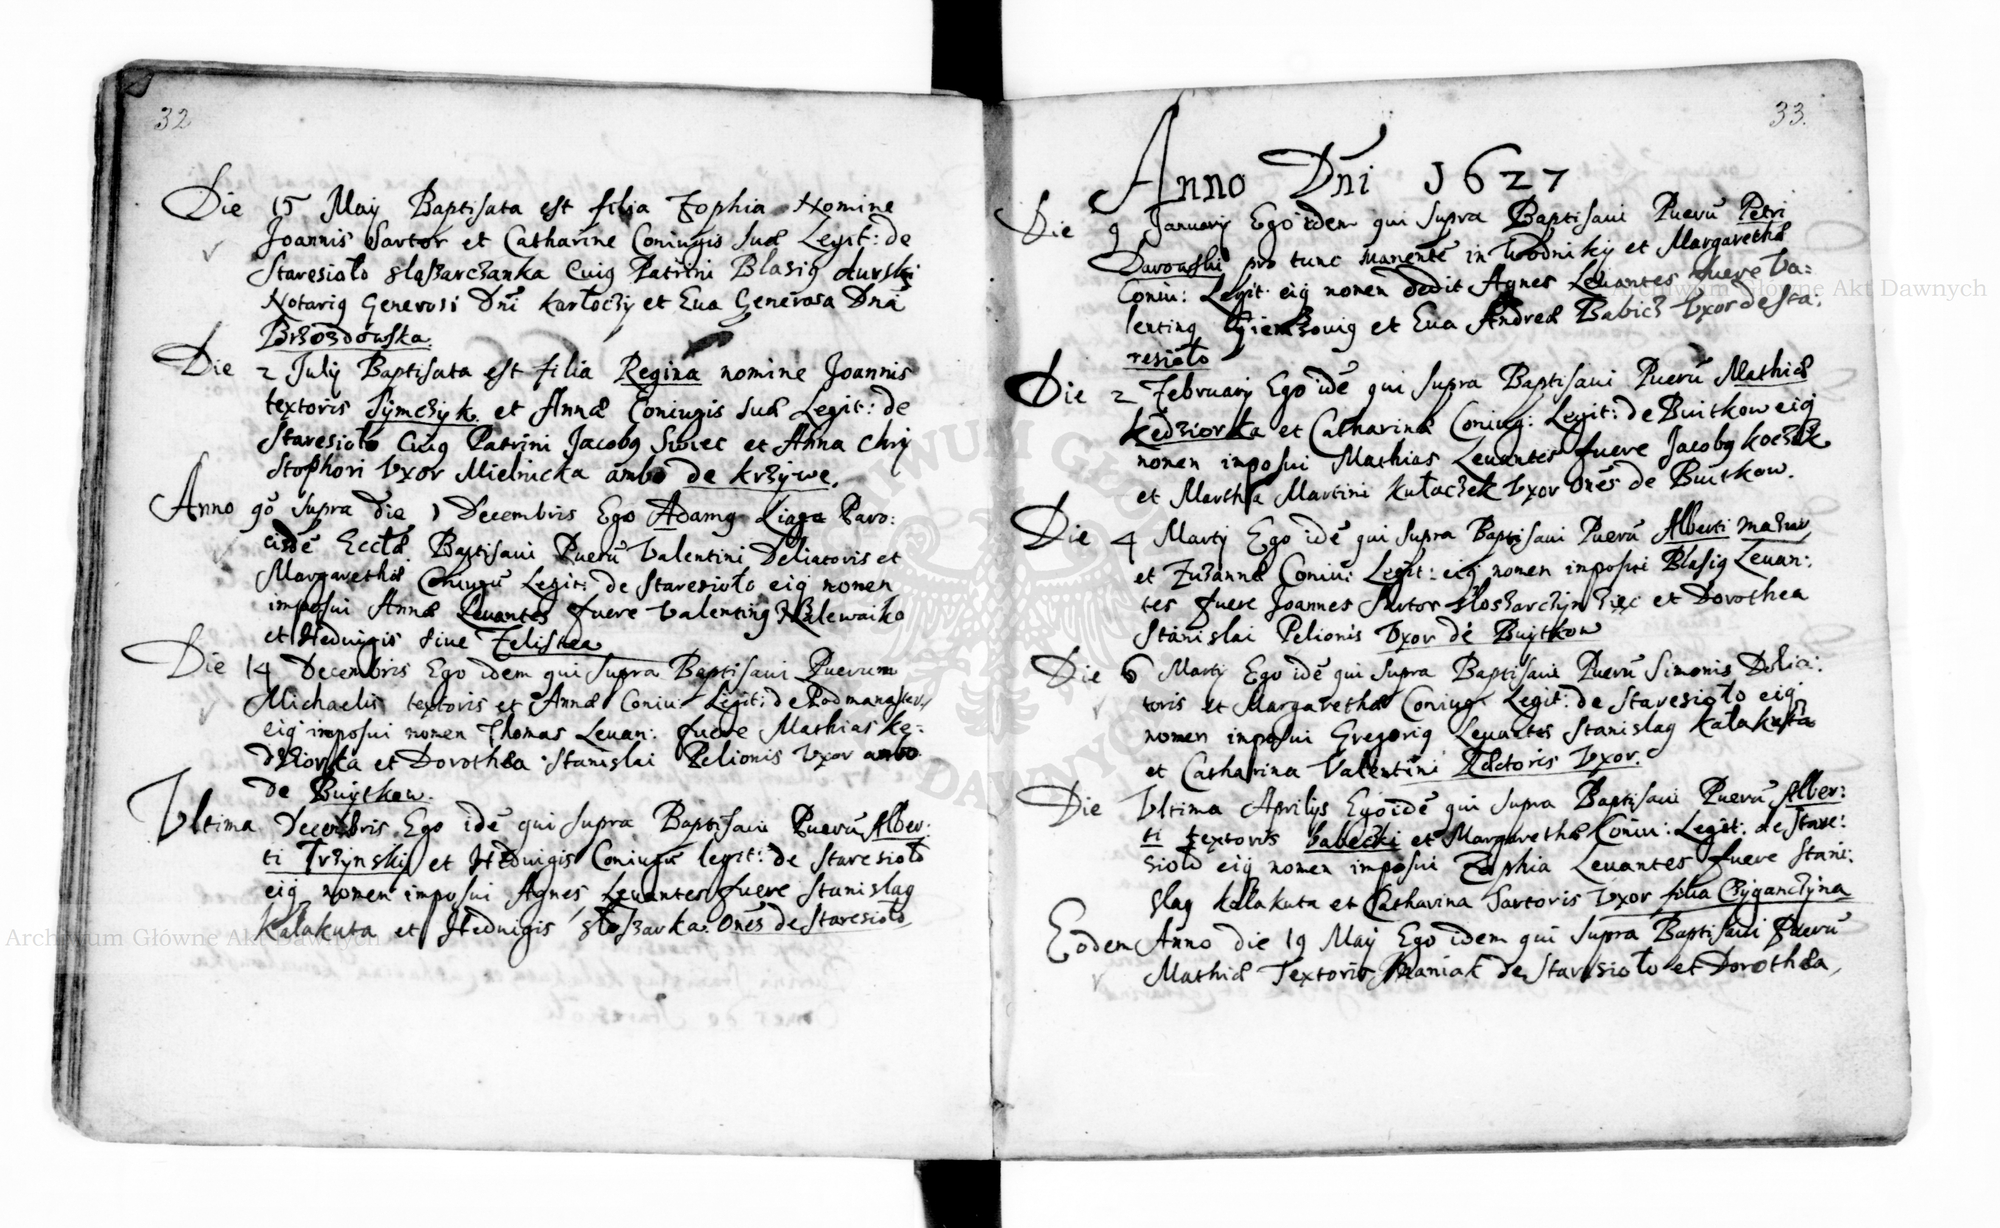 32
Die 15 Maÿ Baptisata est filia Zophia Nomine
Joannis Sartor et Catharine Coniugis suæ Legit: de
Staresioło Cuiꝯ Patrini Blasiꝯ
Notariꝯ Generosi Dni Karłoczÿ et Eua Generosa Dnā
Brzozdowska.
Die 2 Julÿ Baptisata est filia Regina nomine Joannis
textoris Sÿmczÿk. et Annæ Coniugis suæ Legit: de
Staresioło Cuiꝯ Patrini Jacobꝯ Swiec et Anna Chrÿ
stophori Vxor Mielnicka ambo de krzÿwe.
Anno qō supra die 1 Decembris Ego Adamꝯ Liaga Paro:
Eccłæ Baptisaui Puerū Valentini Deliatoris et
Margarethæ Coniugū Legit: de Staresioło eiꝯ nomen
imposui Annæ Leuantes fuere Valentinꝯ Nalewaiko
et Heduigis siue
Die 14 Decembris Ego idem qui supra Baptisaui Puerum
Michaelis textoris et Annæ Coniu: Legit: de
eiꝯ imposui nomen Thomas Leuan: fuere Mathias ke=
dziorka et Dorothea Stanislai Pelionis Vxor ambo
de Buÿtkow.
Vltima Decembris Ego idē qui supra Baptisaui Puerū Alber:
ti Trzÿnski et Heduigis Coniugū legit: de Staresioło
eiꝯ nomen imposui Agnes Leuantes fuere Stanislaꝯ
Kalakuta et Heduigis słoszarka. Onēs de Staresioło.
33.
Anno Dni 1627
Die 9 Januarÿ Ego idem qui supra Baptisaui Puerū Petri
Darowski pro tunc manentē in Wodnikÿ et Margarethæ
Coniu: Legit: eiꝯ nomen dedit Agnes Leuantes fuere Va=
lentinꝯ et Eua Andreæ Babicz Vxor de Sta:
resioło
Die 2 Februarÿ Ego idē qui supra Baptisaui Puerū Mathiæ
kedziorka et Catharinæ Coniug: Legit: de Buitkow eiꝯ
nomen imposui Mathias Leuantes fuere Jacobꝯ
et Martha Martini kułaczek Vxor Onēs de Buitkow.
Die 4 Martÿ Ego idē qui supra Baptisaui Puerū Alberti Mazur
et Zuzannæ Coniu: Legit: eiꝯ nomen imposui Blasiꝯ Leuan:
tes fuere Joannes Sartor et Dorothea
Stanislai Pelionis Vxor de Buÿtkow
Die 6 Martÿ Ego idē qui supra Baptisaui Puerū Simonis Delia:
toris et Margarethæ Coniug: Legit: de Staresioło eiꝯ
nomen imposui Gregoriꝯ Leuantes Stanislaꝯ Kalakuta
et Catharina Valentini Vxor.
Die Vltima Aprilÿs Ego idē qui supra Baptisaui Puerū Alber:
ti textoris babecki et Margarethæ Coniu: Legit: de Stare:
sioło eiꝯ nomen imposui Zophia Leuantes fuere Stani:
slaꝯ kalakuta et Catharina Sartoris Vxor filia Czÿganczÿna
Eodem Anno die 19 Maÿ Ego idem qui supra Baptisaui Puerū
Mathiæ Textoris de Staresioło et Dorothea,
ARCHIWUM GŁÓWNE AKT DAWNYCH
Archiwum Główne Akt Dawnych
Archiwum Główne Akt Dawnych